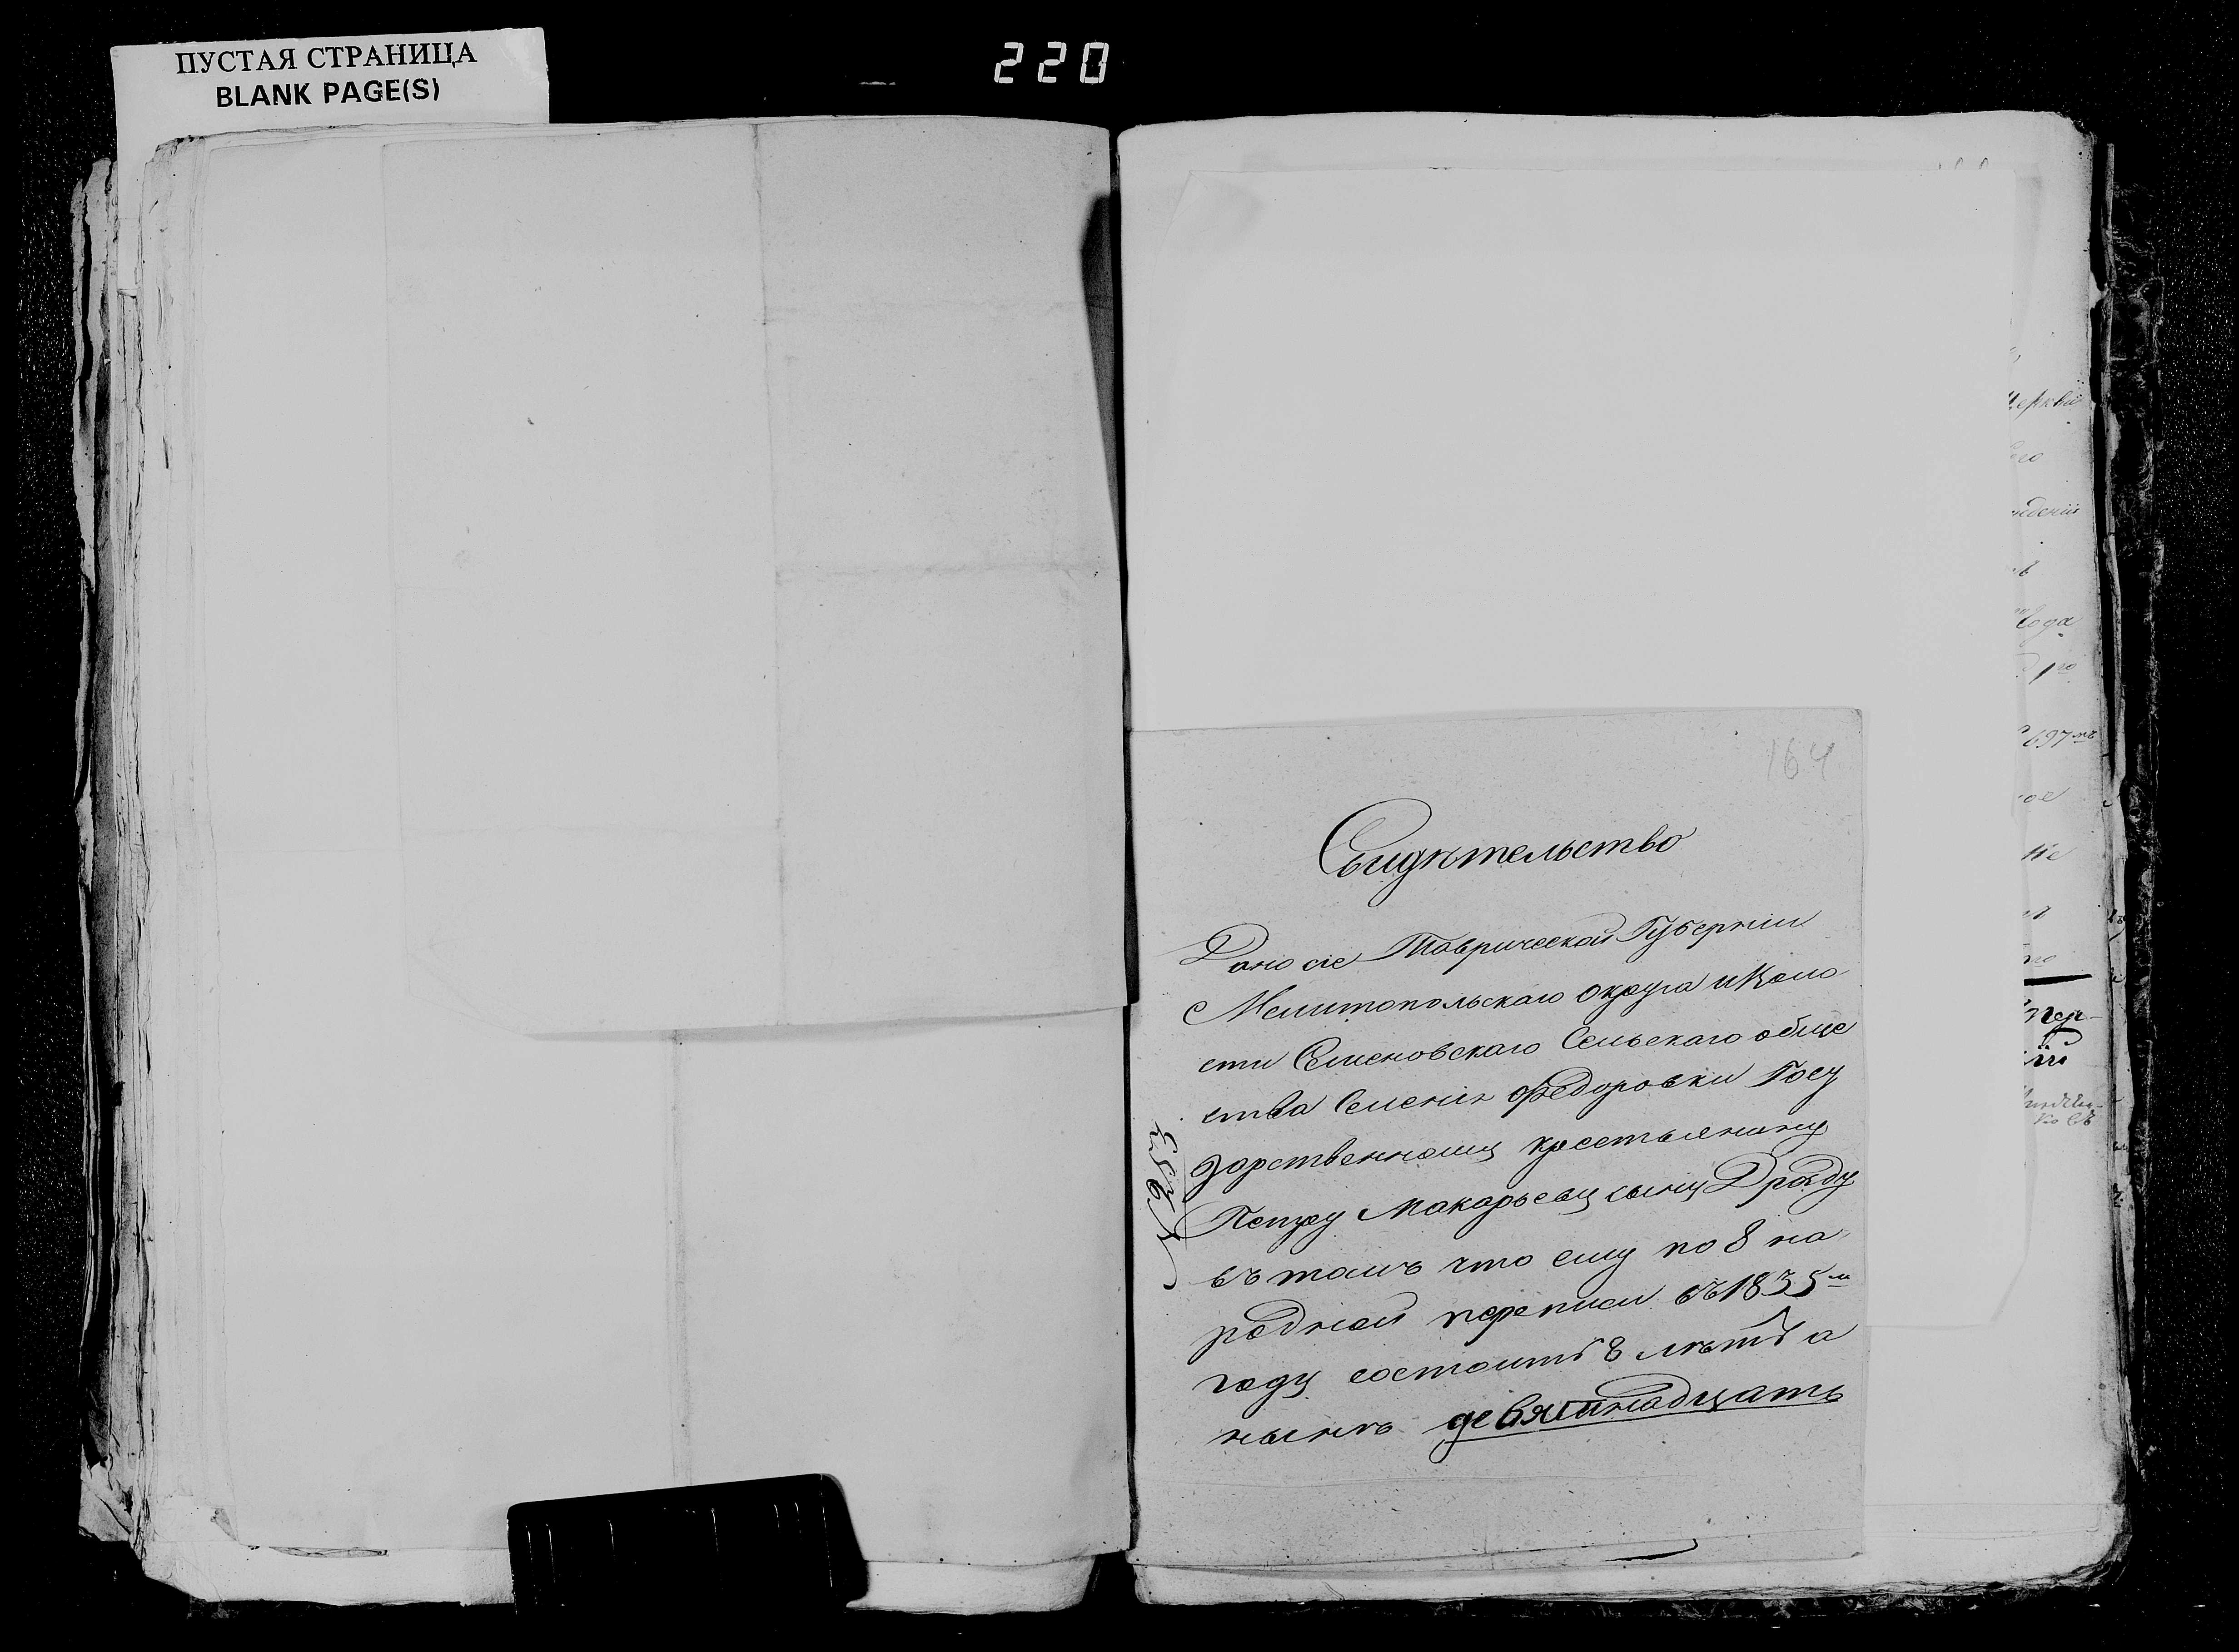 ПУСТАЯ СТРАНИЦА
BLANK PAGE(S)
220
164
Свидѣтельство
Дано сіе Таврической Губерніи
Мелитопольскаго округа и воло
сти Семеновскаго Сельскаго обще
ства Селенія Федоровки Госу
дарственному крестьянину
Петру Макарьеву сыну Драду
въ томъ что ему по 8 на
родной переписи въ 1835м
году состоитъ 8 лѣтъ а
нынѣ девятнадцать
Церкви
года
1го
697мъ